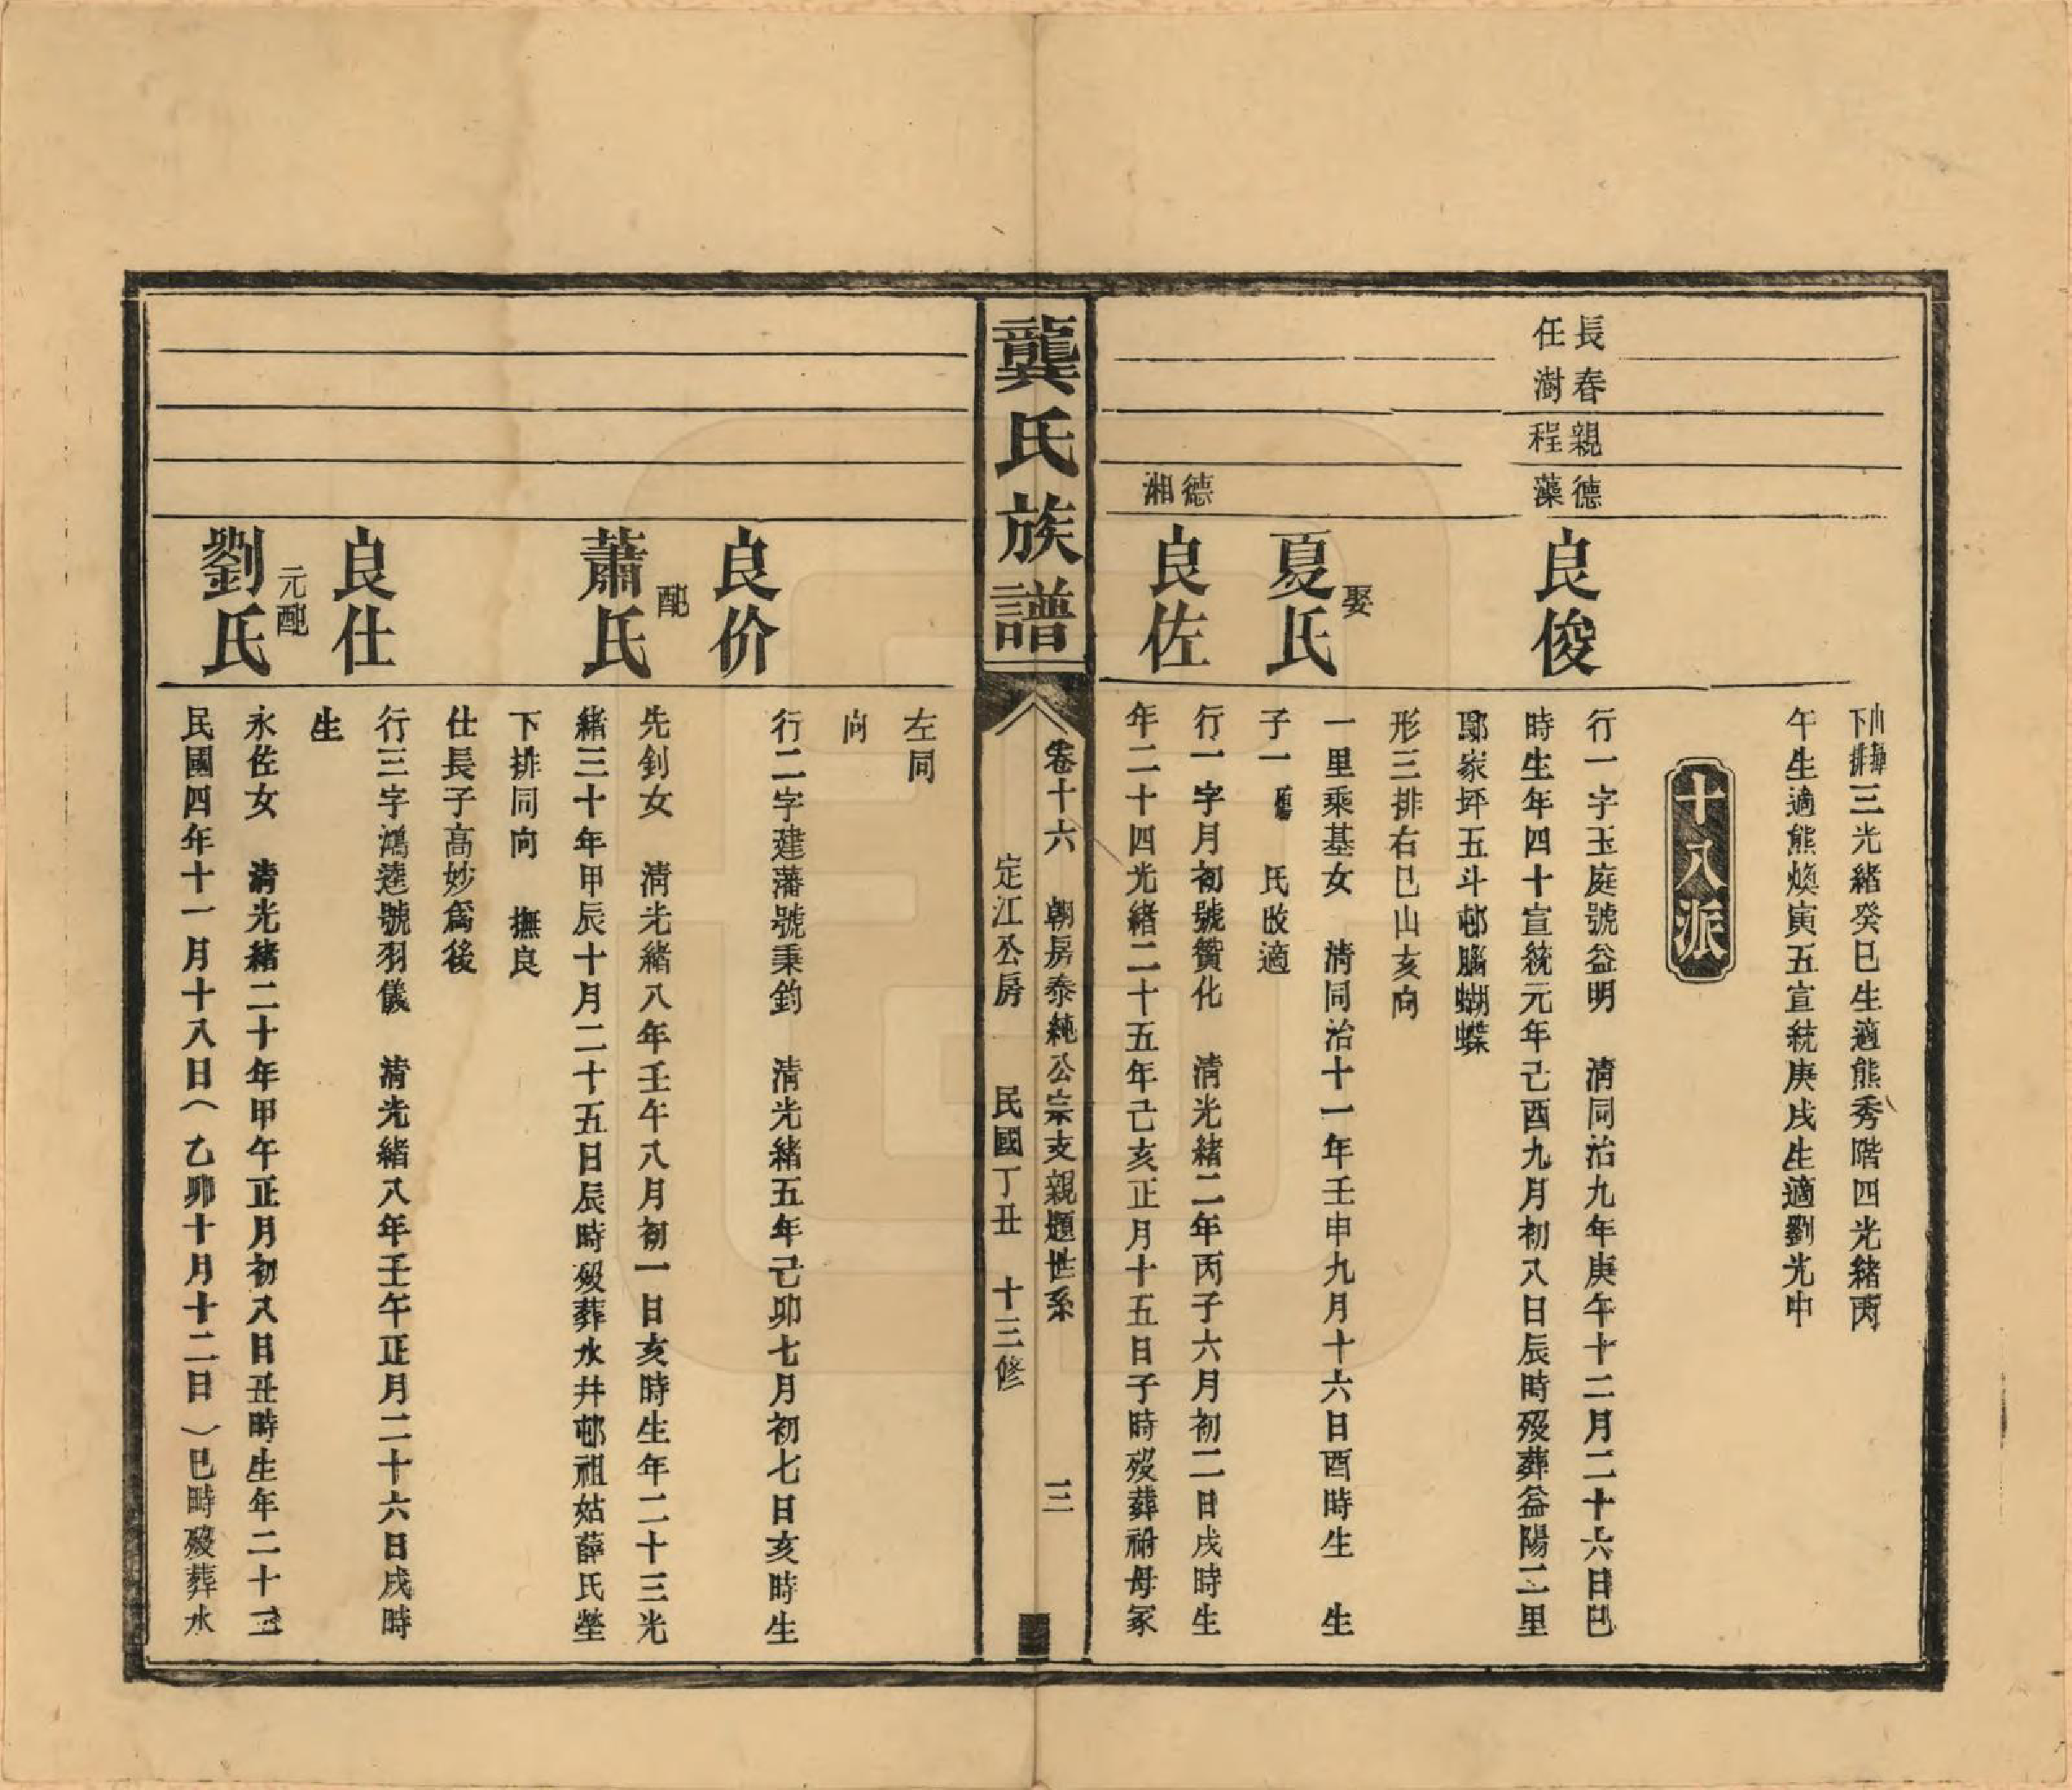 下排三光緒癸巳生適熊秀階四光緒丙
午生適熊煥寅五宣統庚戌生適劉光中
十八派
長春親德
任澍程藻
良俊
行一字玉庭號益明　清同治九年庚午十二月二十六日巳
時生年四十宣統元年己酉九月初八日辰時歿葬益陽二里
鄢家坪五斗邨腦蝴蝶
形三排右巳山亥向
娶
夏氏
一里乘基女　清同治十一年壬申九月十六日酉時生　生
子一　氏改適
德湘
良佐
行一字月初號贊化　清光緒二年丙子六月初二日戌時生
年二十四光緒二十五年己亥正月十五日子時歿葬祔母冢
龔氏族譜
卷十六　朝房泰純公宗支親題世系　三
定江公房　民國丁丑　十三修
左同
向
良价
行二字建藩號秉鈞　清光緒五年己卯七月初七日亥時生
配
蕭氏
先釗女　清光緒八年壬午八月初一日亥時生年二十三光
緒三十年甲辰十月二十五日辰時歿葬水井邨祖姑薛氏塋
下排同向　撫良
仕長子高妙爲後
良仕
行三字鴻逵號羽儀　清光緒八年壬午正月二十六日戌時
生
元配
劉氏
永佐女　清光緒二十年甲午正月初八日丑時生年二十二
民國四年十一月十八日（乙卯十月十二日）巳時歿葬水